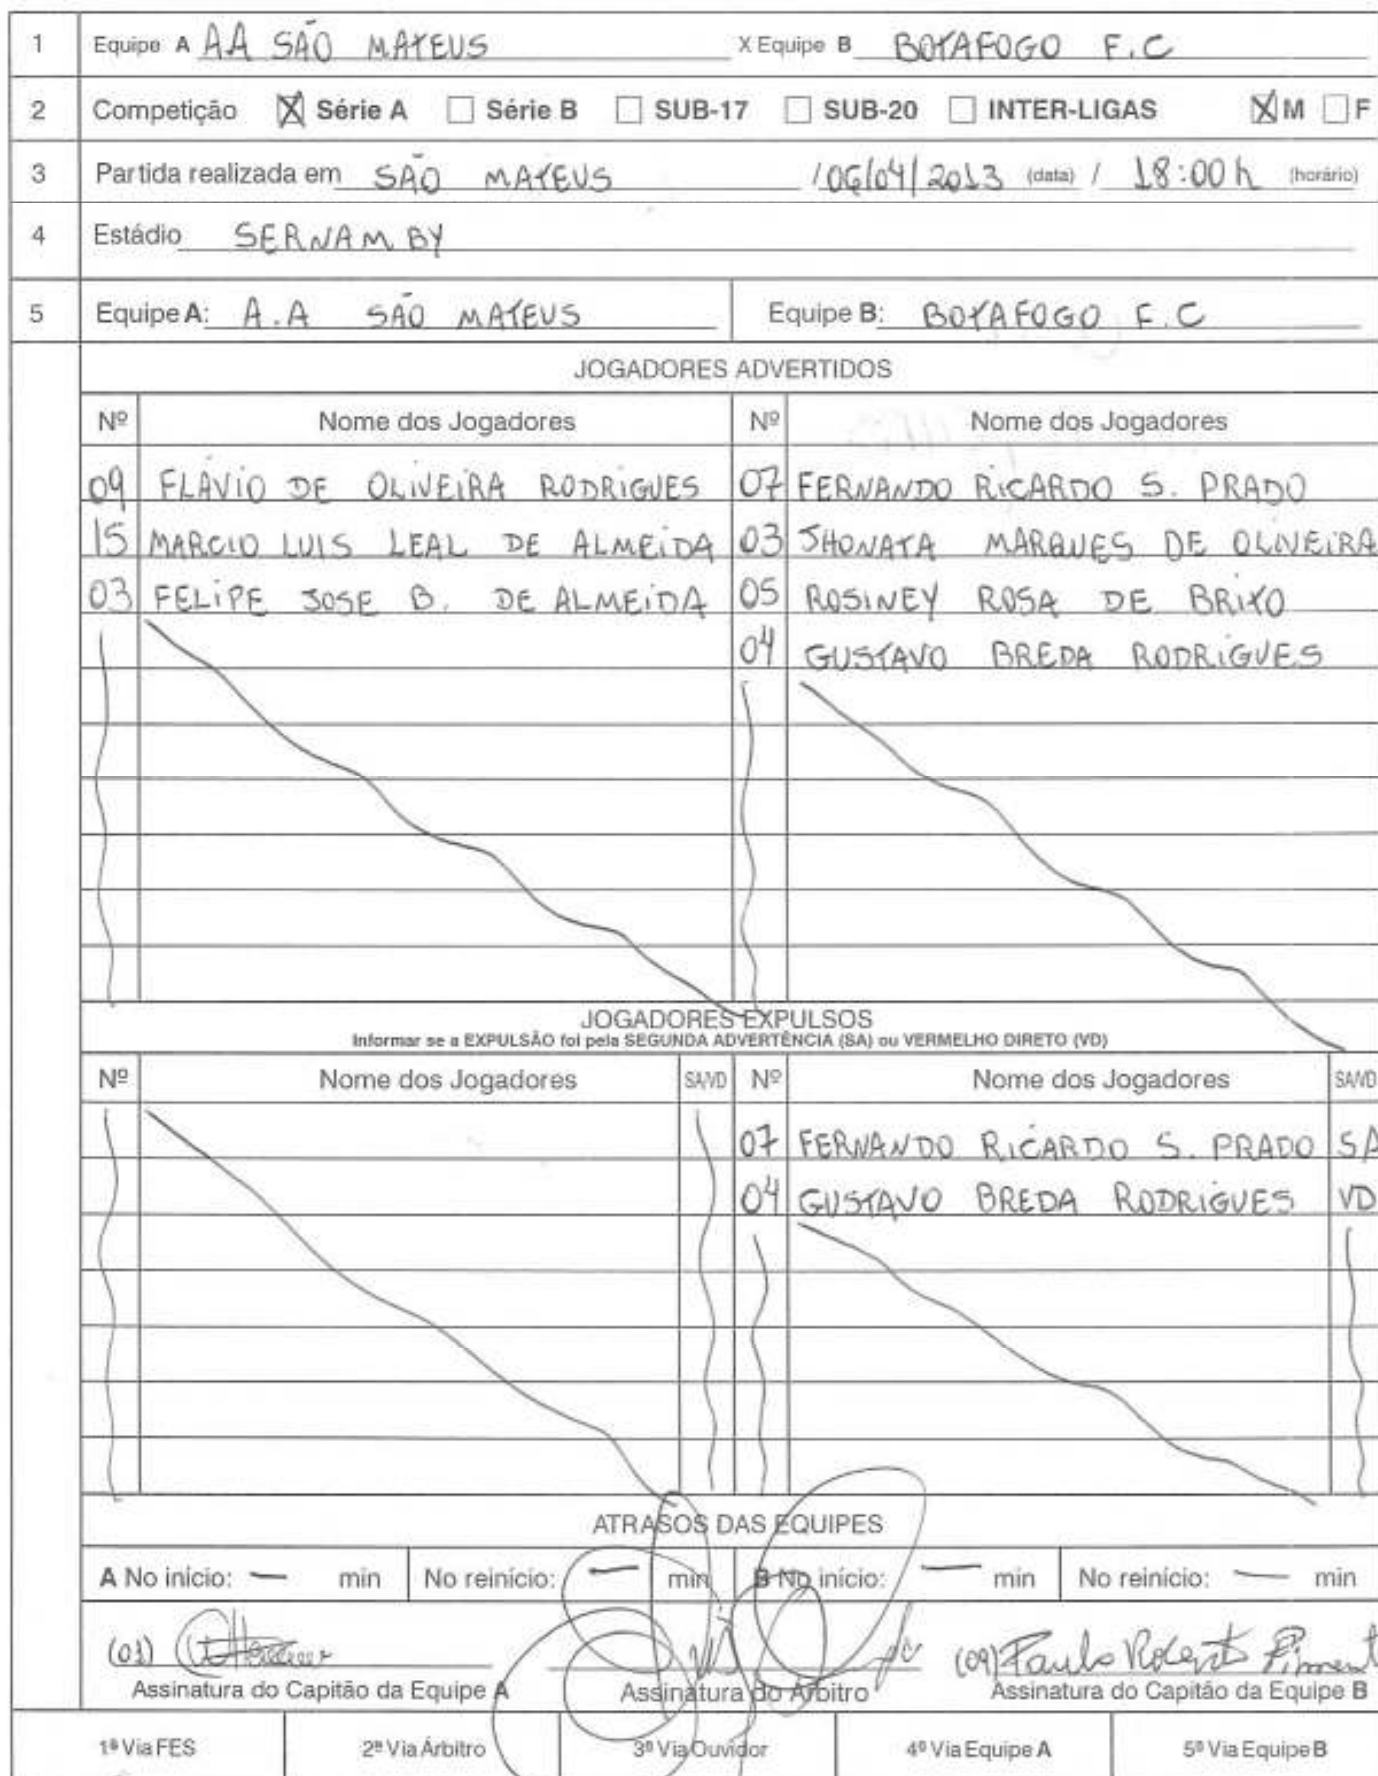 1 Equipe A AA SÃO MATEUS X Equipe B BOTAFOGO F.C
2 Competição ☒ Série A ☐ Série B ☐ SUB-17 ☐ SUB-20 ☐ INTER-LIGAS ☒ M ☐ F
3 Partida realizada em SÃO MATEUS / 06/04/2013 (data) / 18:00 h (horário)
4 Estádio SERNAMBY
5 Equipe A: A.A SÃO MATEUS Equipe B: BOTAFOGO F.C
JOGADORES ADVERTIDOS
Nº Nome dos Jogadores Nº Nome dos Jogadores
09 FLÁVIO DE OLIVEIRA RODRIGUES 07 FERNANDO RICARDO S. PRADO
15 MARCIO LUIS LEAL DE ALMEIDA 03 JHONATA MARQUES DE OLIVEIRA
03 FELIPE JOSE B. DE ALMEIDA 05 ROSINEY ROSA DE BRITO
04 GUSTAVO BREDA RODRIGUES
JOGADORES EXPULSOS
Informar se a EXPULSÃO foi pela SEGUNDA ADVERTÊNCIA (SA) ou VERMELHO DIRETO (VD)
Nº Nome dos Jogadores SA/VD Nº Nome dos Jogadores SA/VD
07 FERNANDO RICARDO S. PRADO SA
04 GUSTAVO BREDA RODRIGUES VD
ATRASOS DAS EQUIPES
A No início: — min No reinício: — min B No início: — min No reinício: — min
(01) (09) Paulo Roberto Piment
Assinatura do Capitão da Equipe A Assinatura do Árbitro Assinatura do Capitão da Equipe B
1ª Via FES 2ª Via Árbitro 3ª Via Ouvidor 4ª Via Equipe A 5ª Via Equipe B